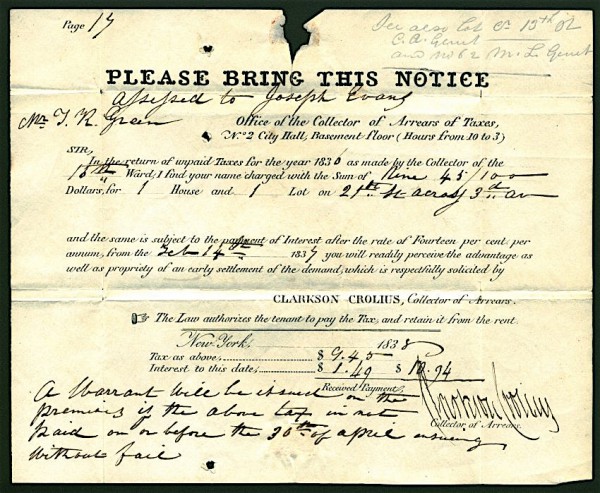 Page 17
See also lot on 13th St
C. A. Gerrit
and No 62 M. L. Gerrit
PLEASE BRING THIS NOTICE
Assessed to Joseph Evans
Mr. T. R. Green Office of the Collector of Arrears of Taxes,
No. 2 City Hall, Basement floor (Hours from 10 to 3)
SIR,
In the return of unpaid Taxes for the year 1836 as made by the Collector of the
Ward; I find your name charged with the Sum of Nine 45/100
Dollars, for 1 House and 1 Lot on 21st St across 3rd av
and the same is subject to the payment of Interest after the rate of Fourteen per cent. per
annum, from the Feb 14th 1837 you will readily perceive the advantage as
well as propriety of an early settlement of the demand, which is respectfully solicited by
CLARKSON CROLIUS, Collector of Arrears.
☞ The Law authorizes the tenant to pay the Tax, and retain it from the rent.
New-York, 1838
Tax as above, $ 9.45
Interest to this date, $ 1.49 $ 10.94
Received Payment,
Clarkson Crolius
Collector of Arrears.
A Warrant will be issued on the
premises if the above tax is not
paid on or before the 30th of April ensuing
without fail